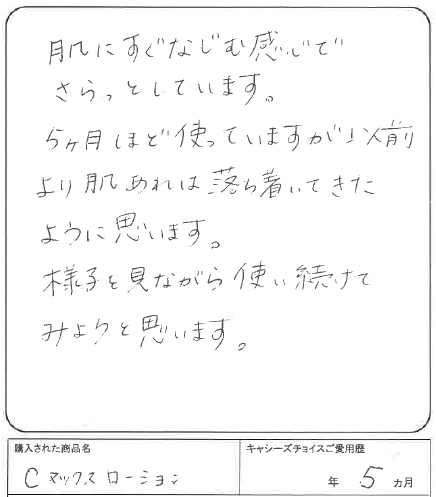 肌にすぐなじむ感じで
さらっとしています。
5ヶ月ほど使っていますが以前
より肌あれは落ち着いてきた
ように思います。
様子を見ながら使い続けて
みようと思います。
購入された商品名
キャシーズチョイスご愛用歴
Cマックスローション
年 5 カ月